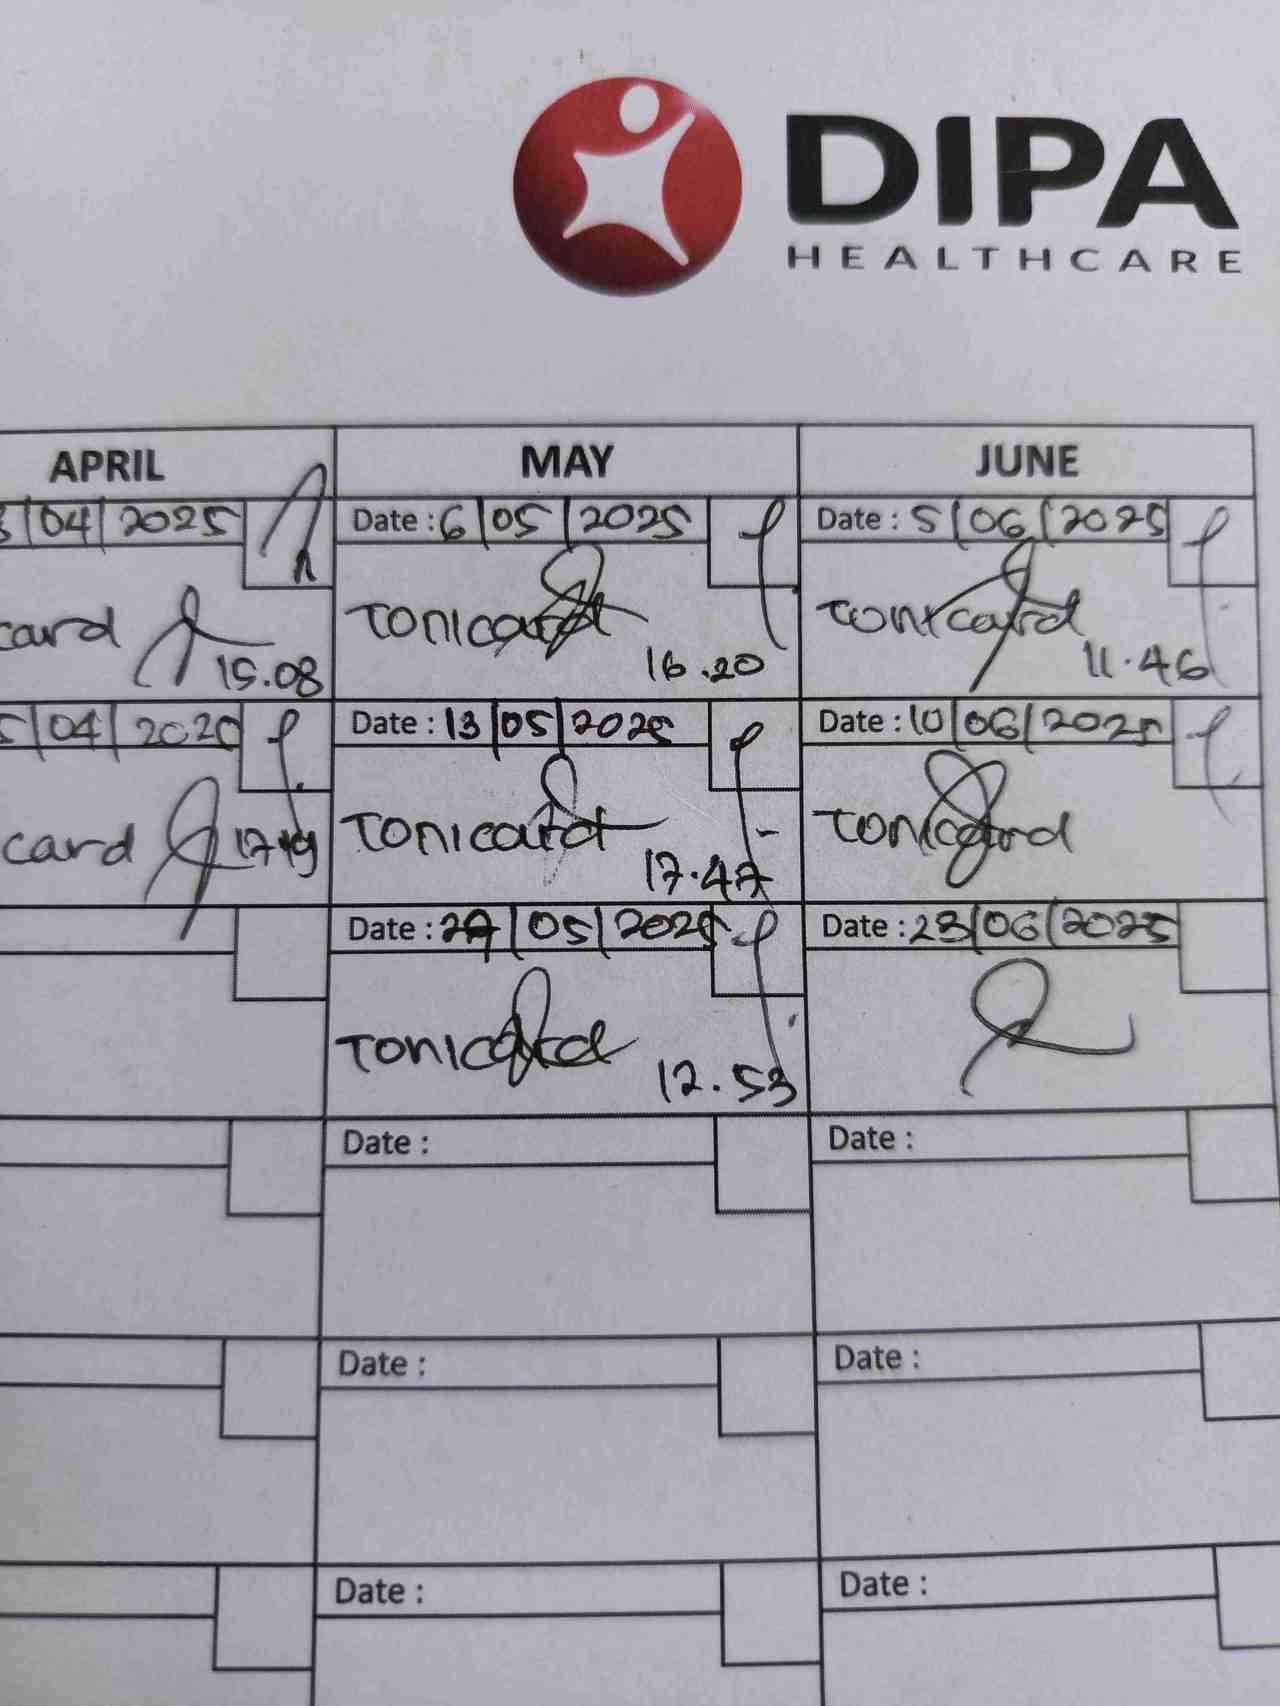 DIPA
HEALTHCARE
APRIL MAY JUNE
/04/2025 Date : 6/05/2025 Date : 5/06/2025
card Tonicard Tonicard
15.08 16.20 11.46
/04/2020 Date : 13/05/2025 Date : 10/06/2025
card 17.49 Tonicard Tonicard
17.47
Date : /05/2025 Date : 23/06/2025
Tonicard
12.53
Date : Date :
Date : Date :
Date : Date :